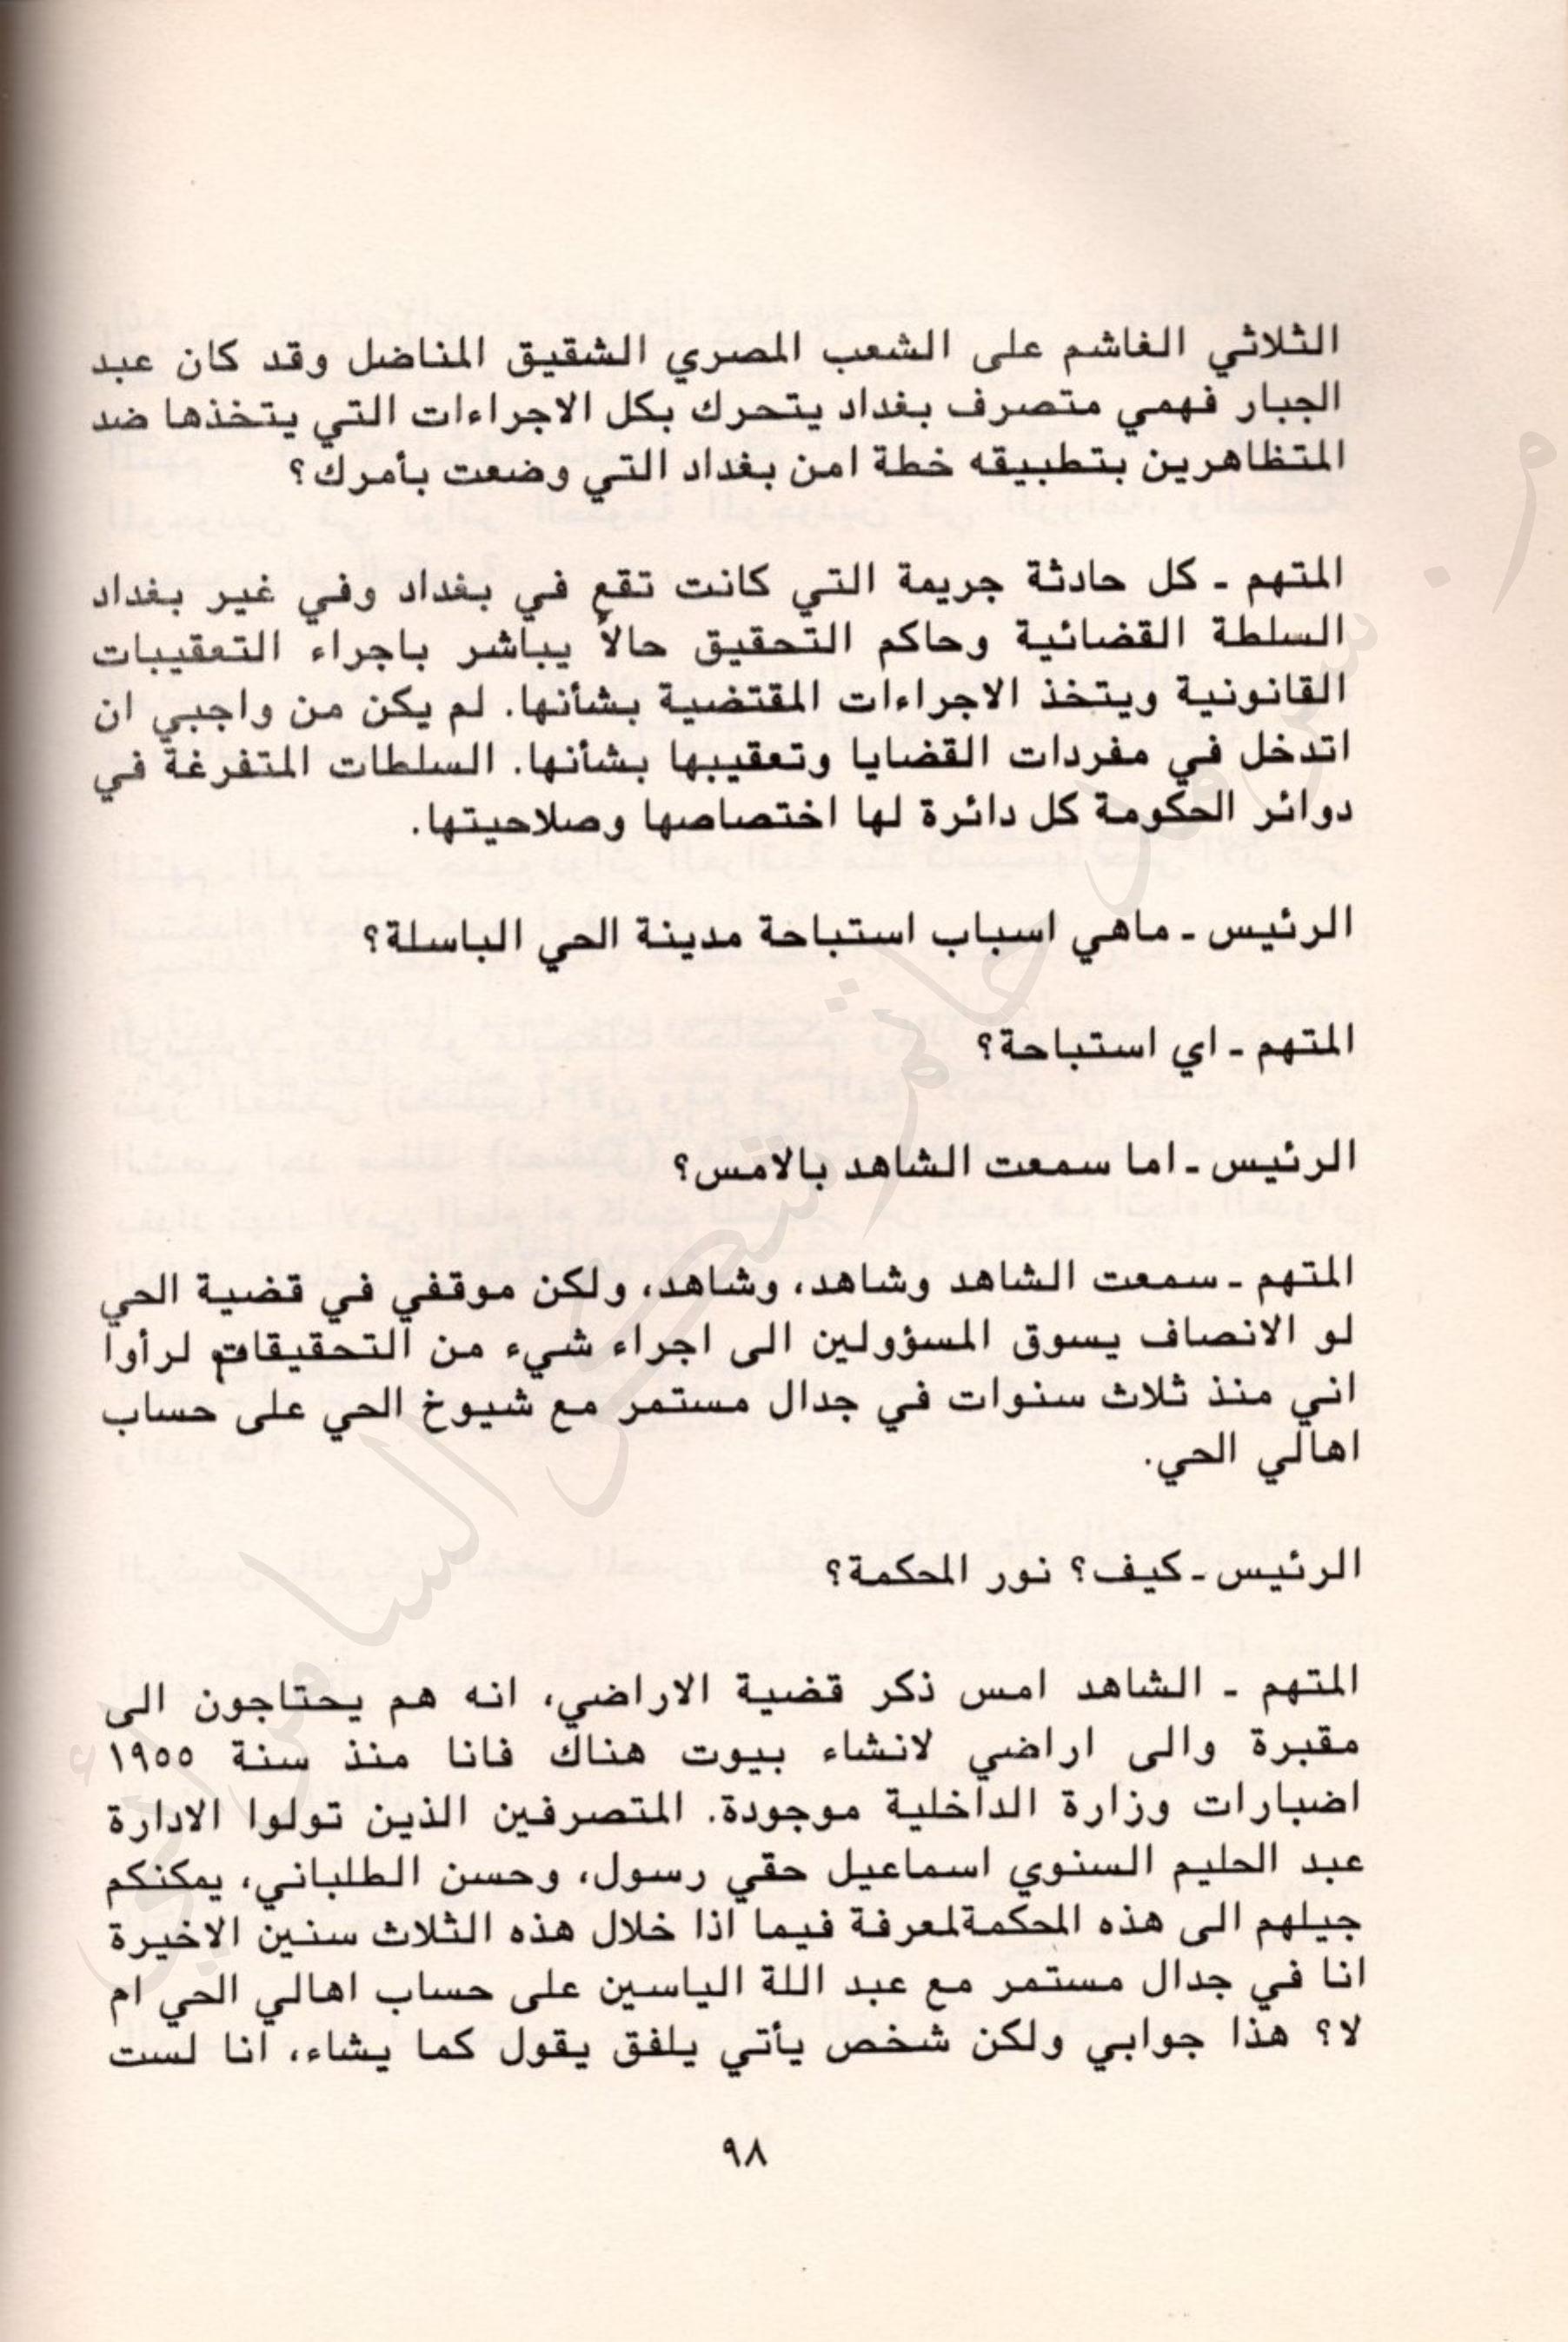 الثلاثي الغاشم على الشعب المصري الشقيق المناضل وقد كان عبد
الجبار فهمي متصرف بغداد يتحرك بكل الاجراءات التي يتخذها ضد
المتظاهرين بتطبيقه خطة امن بغداد التي وضعت بأمرك؟
المتهم - كل حادثة جريمة التي كانت تقع في بغداد وفي غير بغداد
السلطة القضائية وحاكم التحقيق حالاً يباشر باجراء التعقيبات
القانونية ويتخذ الاجراءات المقتضية بشأنها. لم يكن من واجبي ان
اتدخل في مفردات القضايا وتعقيبها بشأنها. السلطات المتفرغة في
دوائر الحكومة كل دائرة لها اختصاصها وصلاحيتها.
الرئيس - ماهي اسباب استباحة مدينة الحي الباسلة؟
المتهم - اي استباحة؟
الرئيس - اما سمعت الشاهد بالامس؟
المتهم - سمعت الشاهد وشاهد، وشاهد، ولكن موقفي في قضية الحي
لو الانصاف يسوق المسؤولين الى اجراء شيء من التحقيقات لرأوا
اني منذ ثلاث سنوات في جدال مستمر مع شيوخ الحي على حساب
اهالي الحي.
الرئيس - كيف؟ نور المحكمة؟
المتهم - الشاهد امس ذكر قضية الاراضي، انه هم يحتاجون الى
مقبرة والى اراضي لانشاء بيوت هناك فانا منذ سنة ١٩٥٥
اضبارات وزارة الداخلية موجودة. المتصرفين الذين تولوا الادارة
عبد الحليم السنوي اسماعيل حقي رسول، وحسن الطلباني، يمكنكم
جيلهم الى هذه المحكمةلمعرفة فيما اذا خلال هذه الثلاث سنين الاخيرة
انا في جدال مستمر مع عبد اللة الياسين على حساب اهالي الحي ام
لا؟ هذا جوابي ولكن شخص يأتي يلفق يقول كما يشاء، انا لست
٩٨